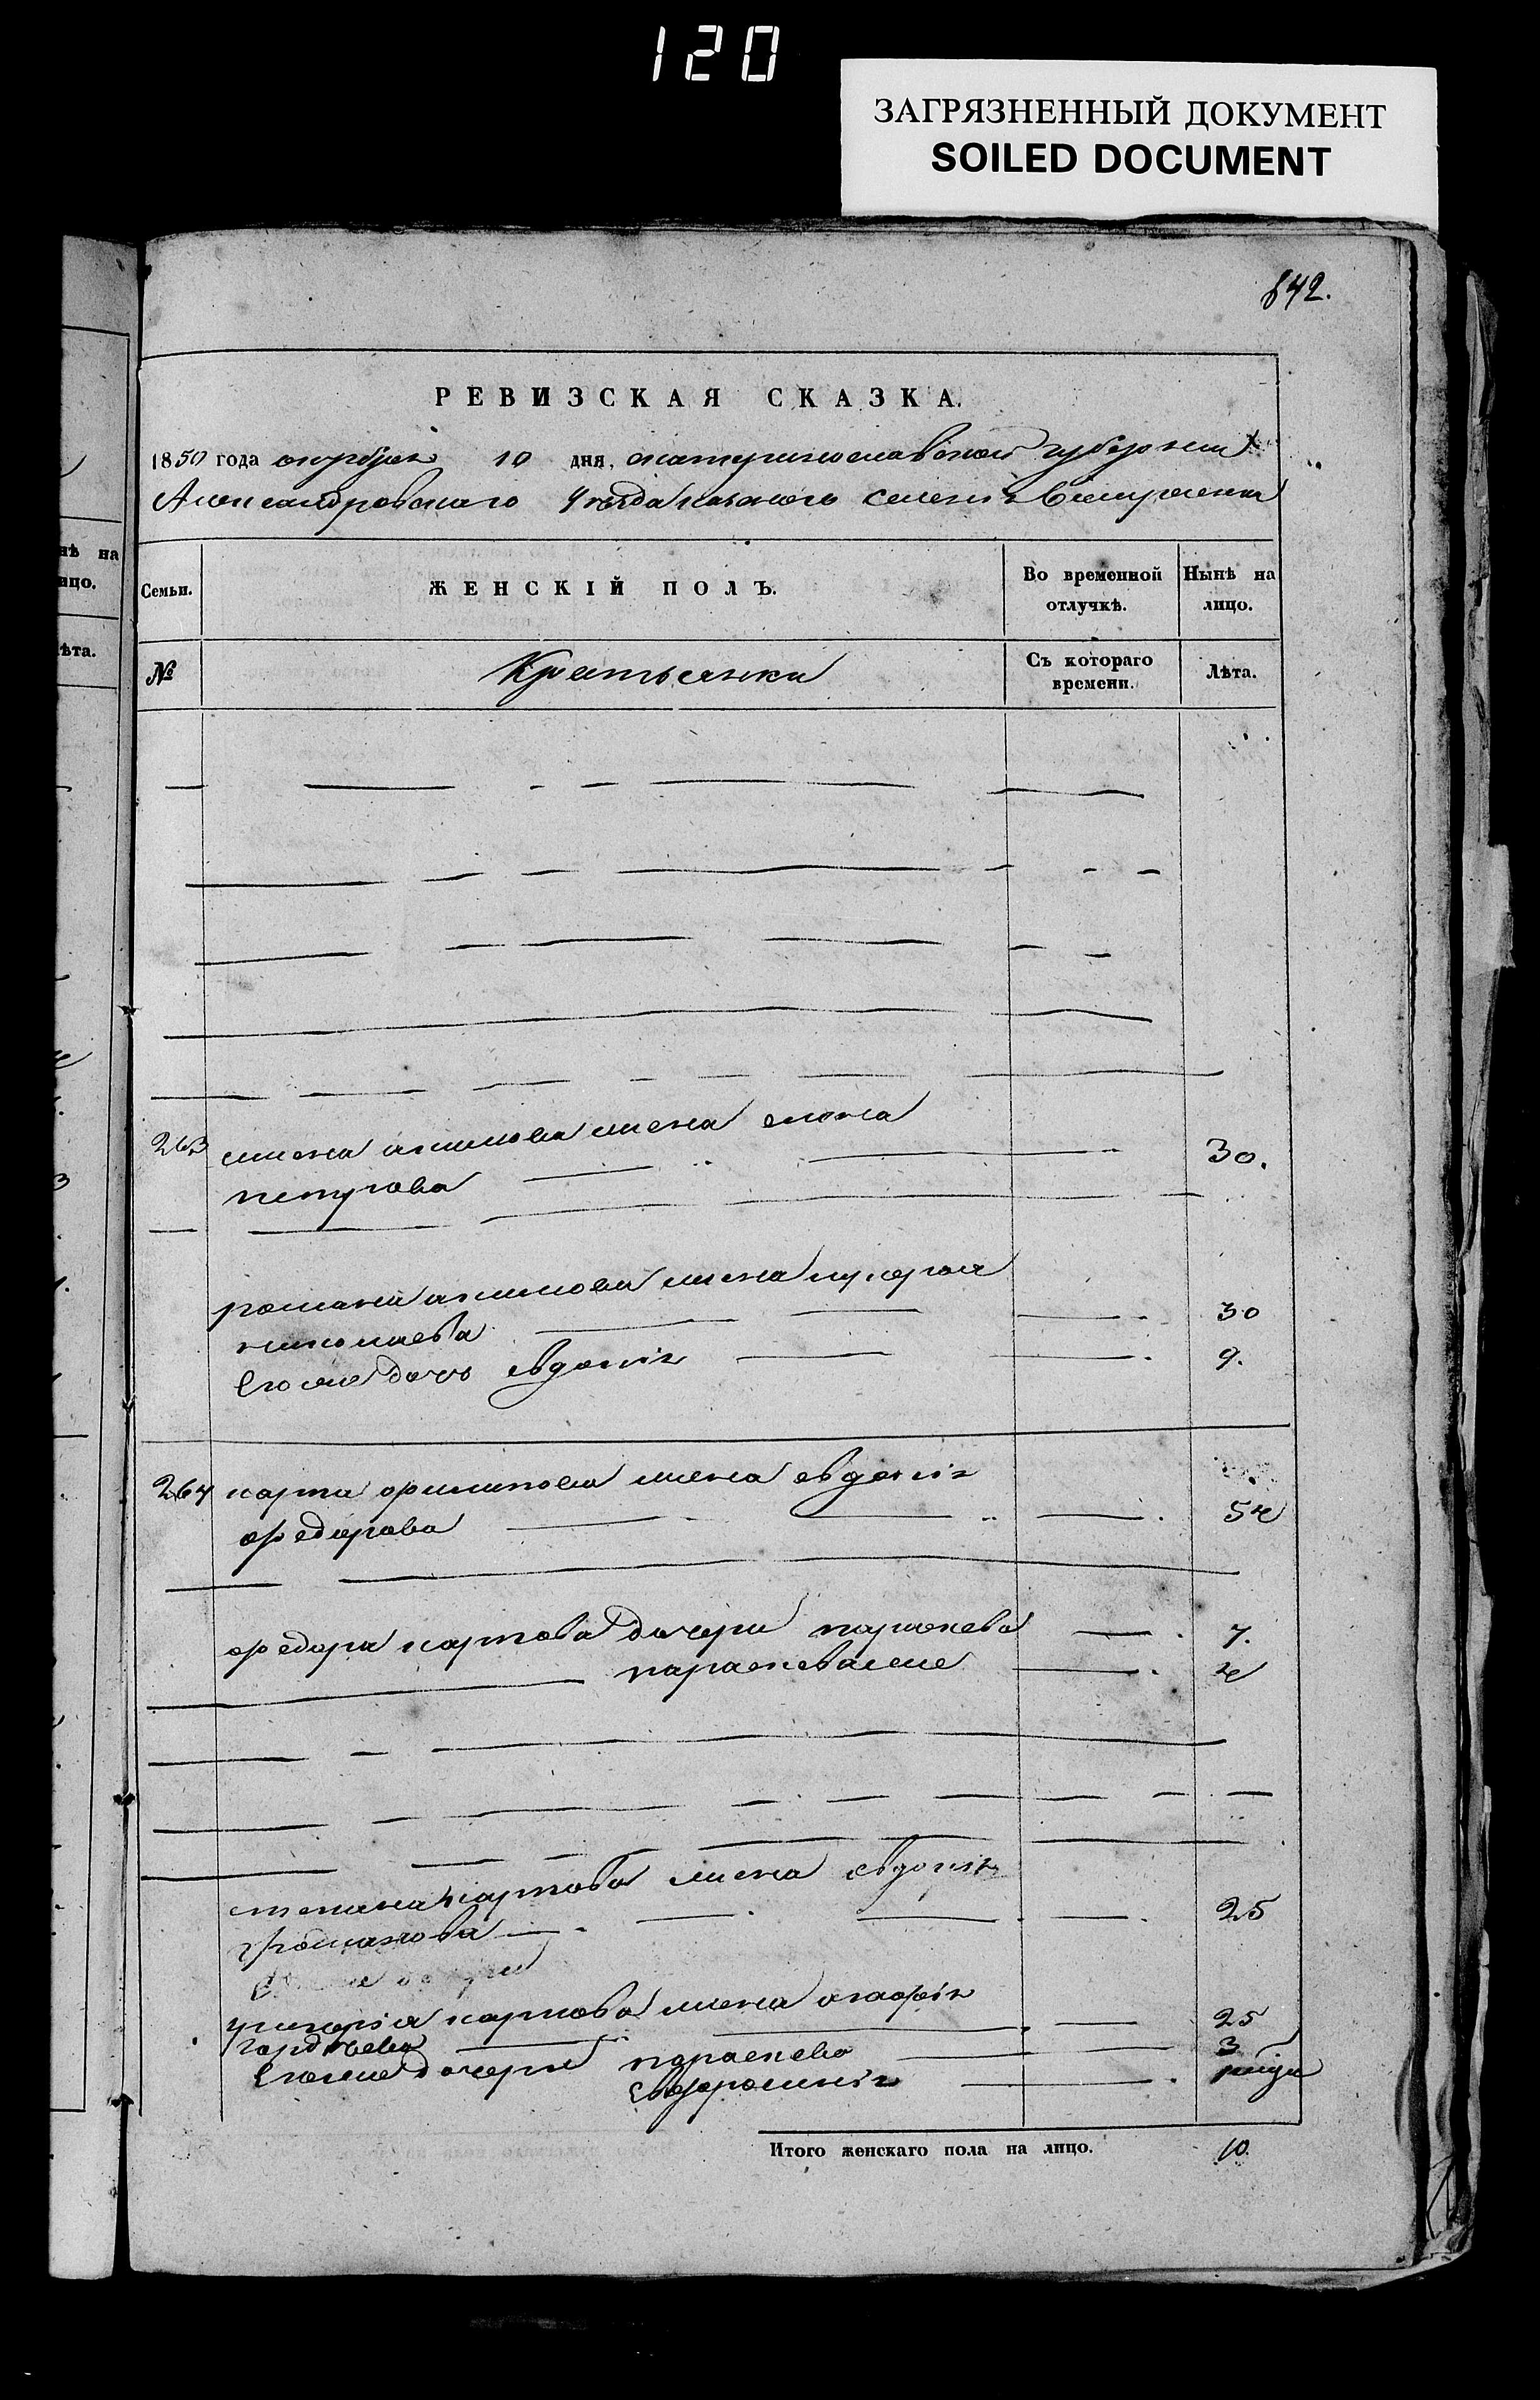 120
ЗАГРЯЗНЕННЫЙ ДОКУМЕНТ
SOILED DOCUMENT
842.
РЕВИЗСКАЯ СКАЗКА.
1850 года октября 10 дня, екатеринославской губернии
Александровского уезда казеного селения
Семьи. ЖЕНСКІЙ ПОЛЪ. Во временной отлучкѣ. Нынѣ на лицо.
№ Крестьянки Съ котораго времени. Лѣта.
263 акимова жена елена
петрова 30.
романа акимова жена
николаева 30
его же дочь евдокия 9.
264 карпа филипова жена евдокия
федорова 54
федора карпова дочери парасковья 7.
парасковья же 4
степана карпова жена евдокия
романова 25
григория карпова жена агафия
гордеева 25
его же дочери парасковья 3
Евфросиния
Итого женскаго пола на лицо. 10.
нѣ на
ицо.
ѣта.